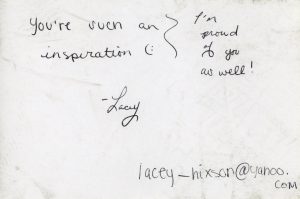 You're such an
inspiration (:
I'm
proud
of you
as well!
-Lacey
lacey_hixson@yahoo.
COM